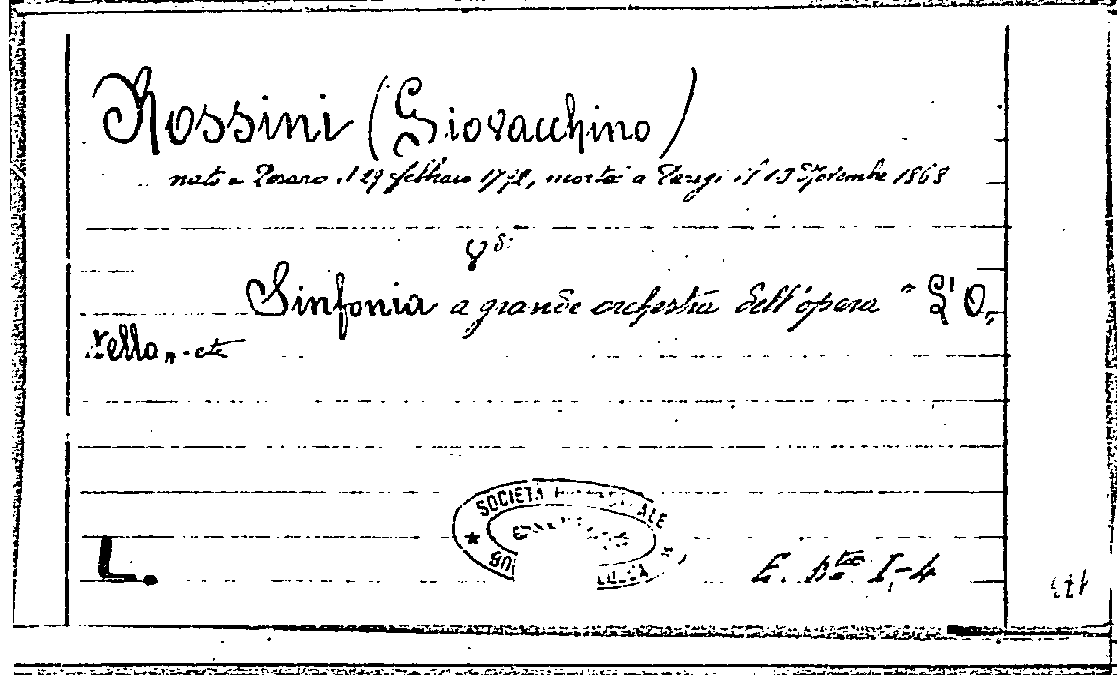 Rossini (Giovacchino)
nato a Pesaro il 29 febbraio 1792, morto a Parigi il 13 Novembre 1868
8°:
Sinfonia a grande orchestra dell'opera "L'O,
tello" - etc
SOCIETÀ ALE
L.
E. b.ta I-4